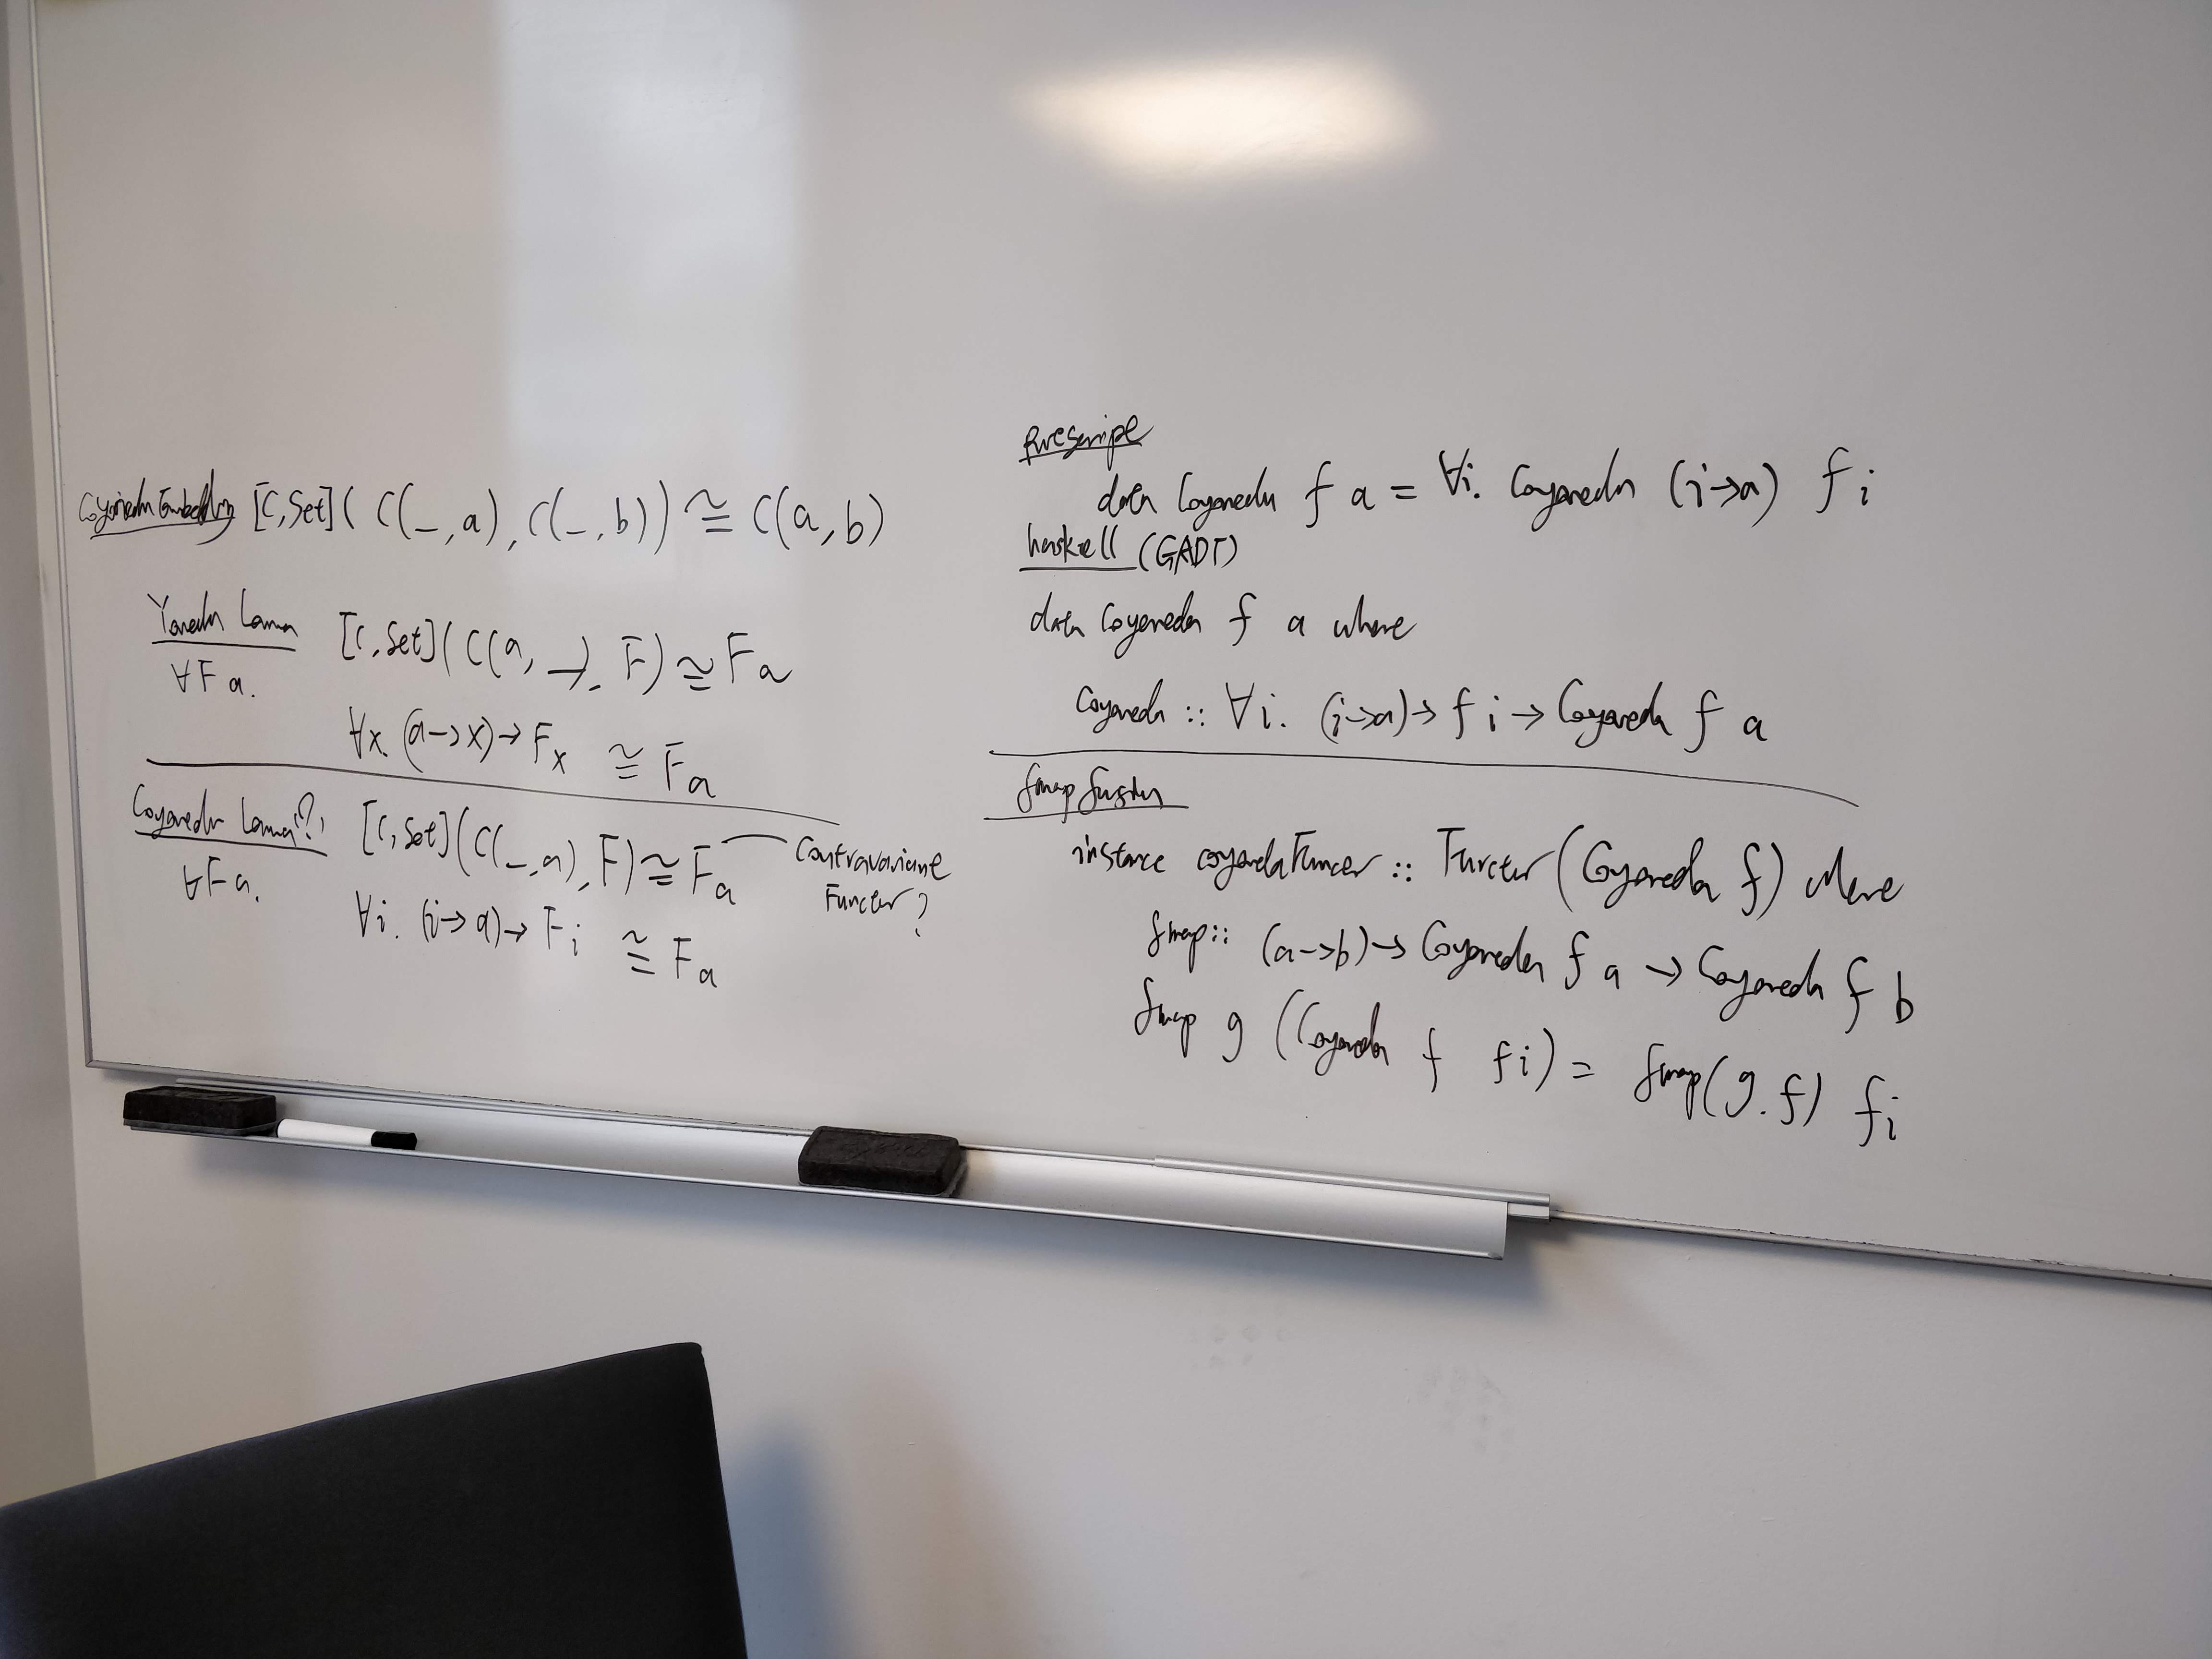 Coyoneda Embedding [C,Set]( C(_,a), C(_,b)) ≅ C(a,b)
Yoneda Lemma
∀F a. [C,Set]( C(a,_), F) ≅ F a
∀x. (a->x)→ F x ≅ F a
Coyoneda Lemma(?)
∀F a. [C,Set](C(_,a), F) ≅ F a
Contravariant
Functor?
∀i. (i->a)→ F i ≅ F a
Purescript
data Coyoneda f a = ∀i. Coyoneda (i->a) f i
haskell (GADT)
data Coyoneda f a where
Coyoneda :: ∀i. (i->a)→ f i → Coyoneda f a
fmap fusion
instance coyonedaFuncer :: Functor (Coyoneda f) where
fmap :: (a->b)→ Coyoneda f a → Coyoneda f b
fmap g (Coyoneda f fi) = fmap(g.f) fi